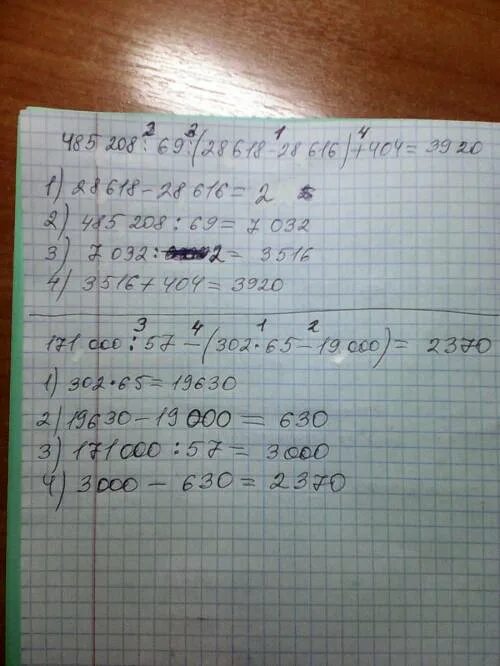 485 208 : 69 : (28 618 - 28 616) + 404 = 3920
2 3 1 4
1) 28618 - 28 616 = 2
2) 485 208 : 69 = 7 032
3) 7 032 : 2 = 3516
4) 3516 + 404 = 3920
3 4 1 2
171 000 : 57 - (302 · 65 - 19 000) = 2370
1) 302 · 65 = 19630
2) 19630 - 19 000 = 630
3) 171000 : 57 = 3000
4) 3000 - 630 = 2370